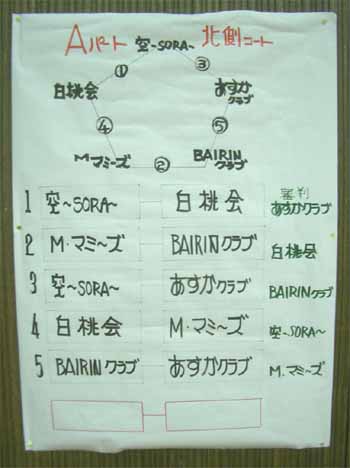 Aパート 北側コート
空~SORA~
① ③
白桃会 あすかクラブ
④ ⑤
M・マミーズ ② BAIRINクラブ
審判
1 空~SORA~ 白桃会 あすかクラブ
2 M・マミ~ズ BAIRINクラブ 白桃会
3 空~SORA~ あすかクラブ BAIRINクラブ
4 白桃会 M・マミ~ズ 空~SORA~
5 BAIRINクラブ あすかクラブ M.マミ~ズ